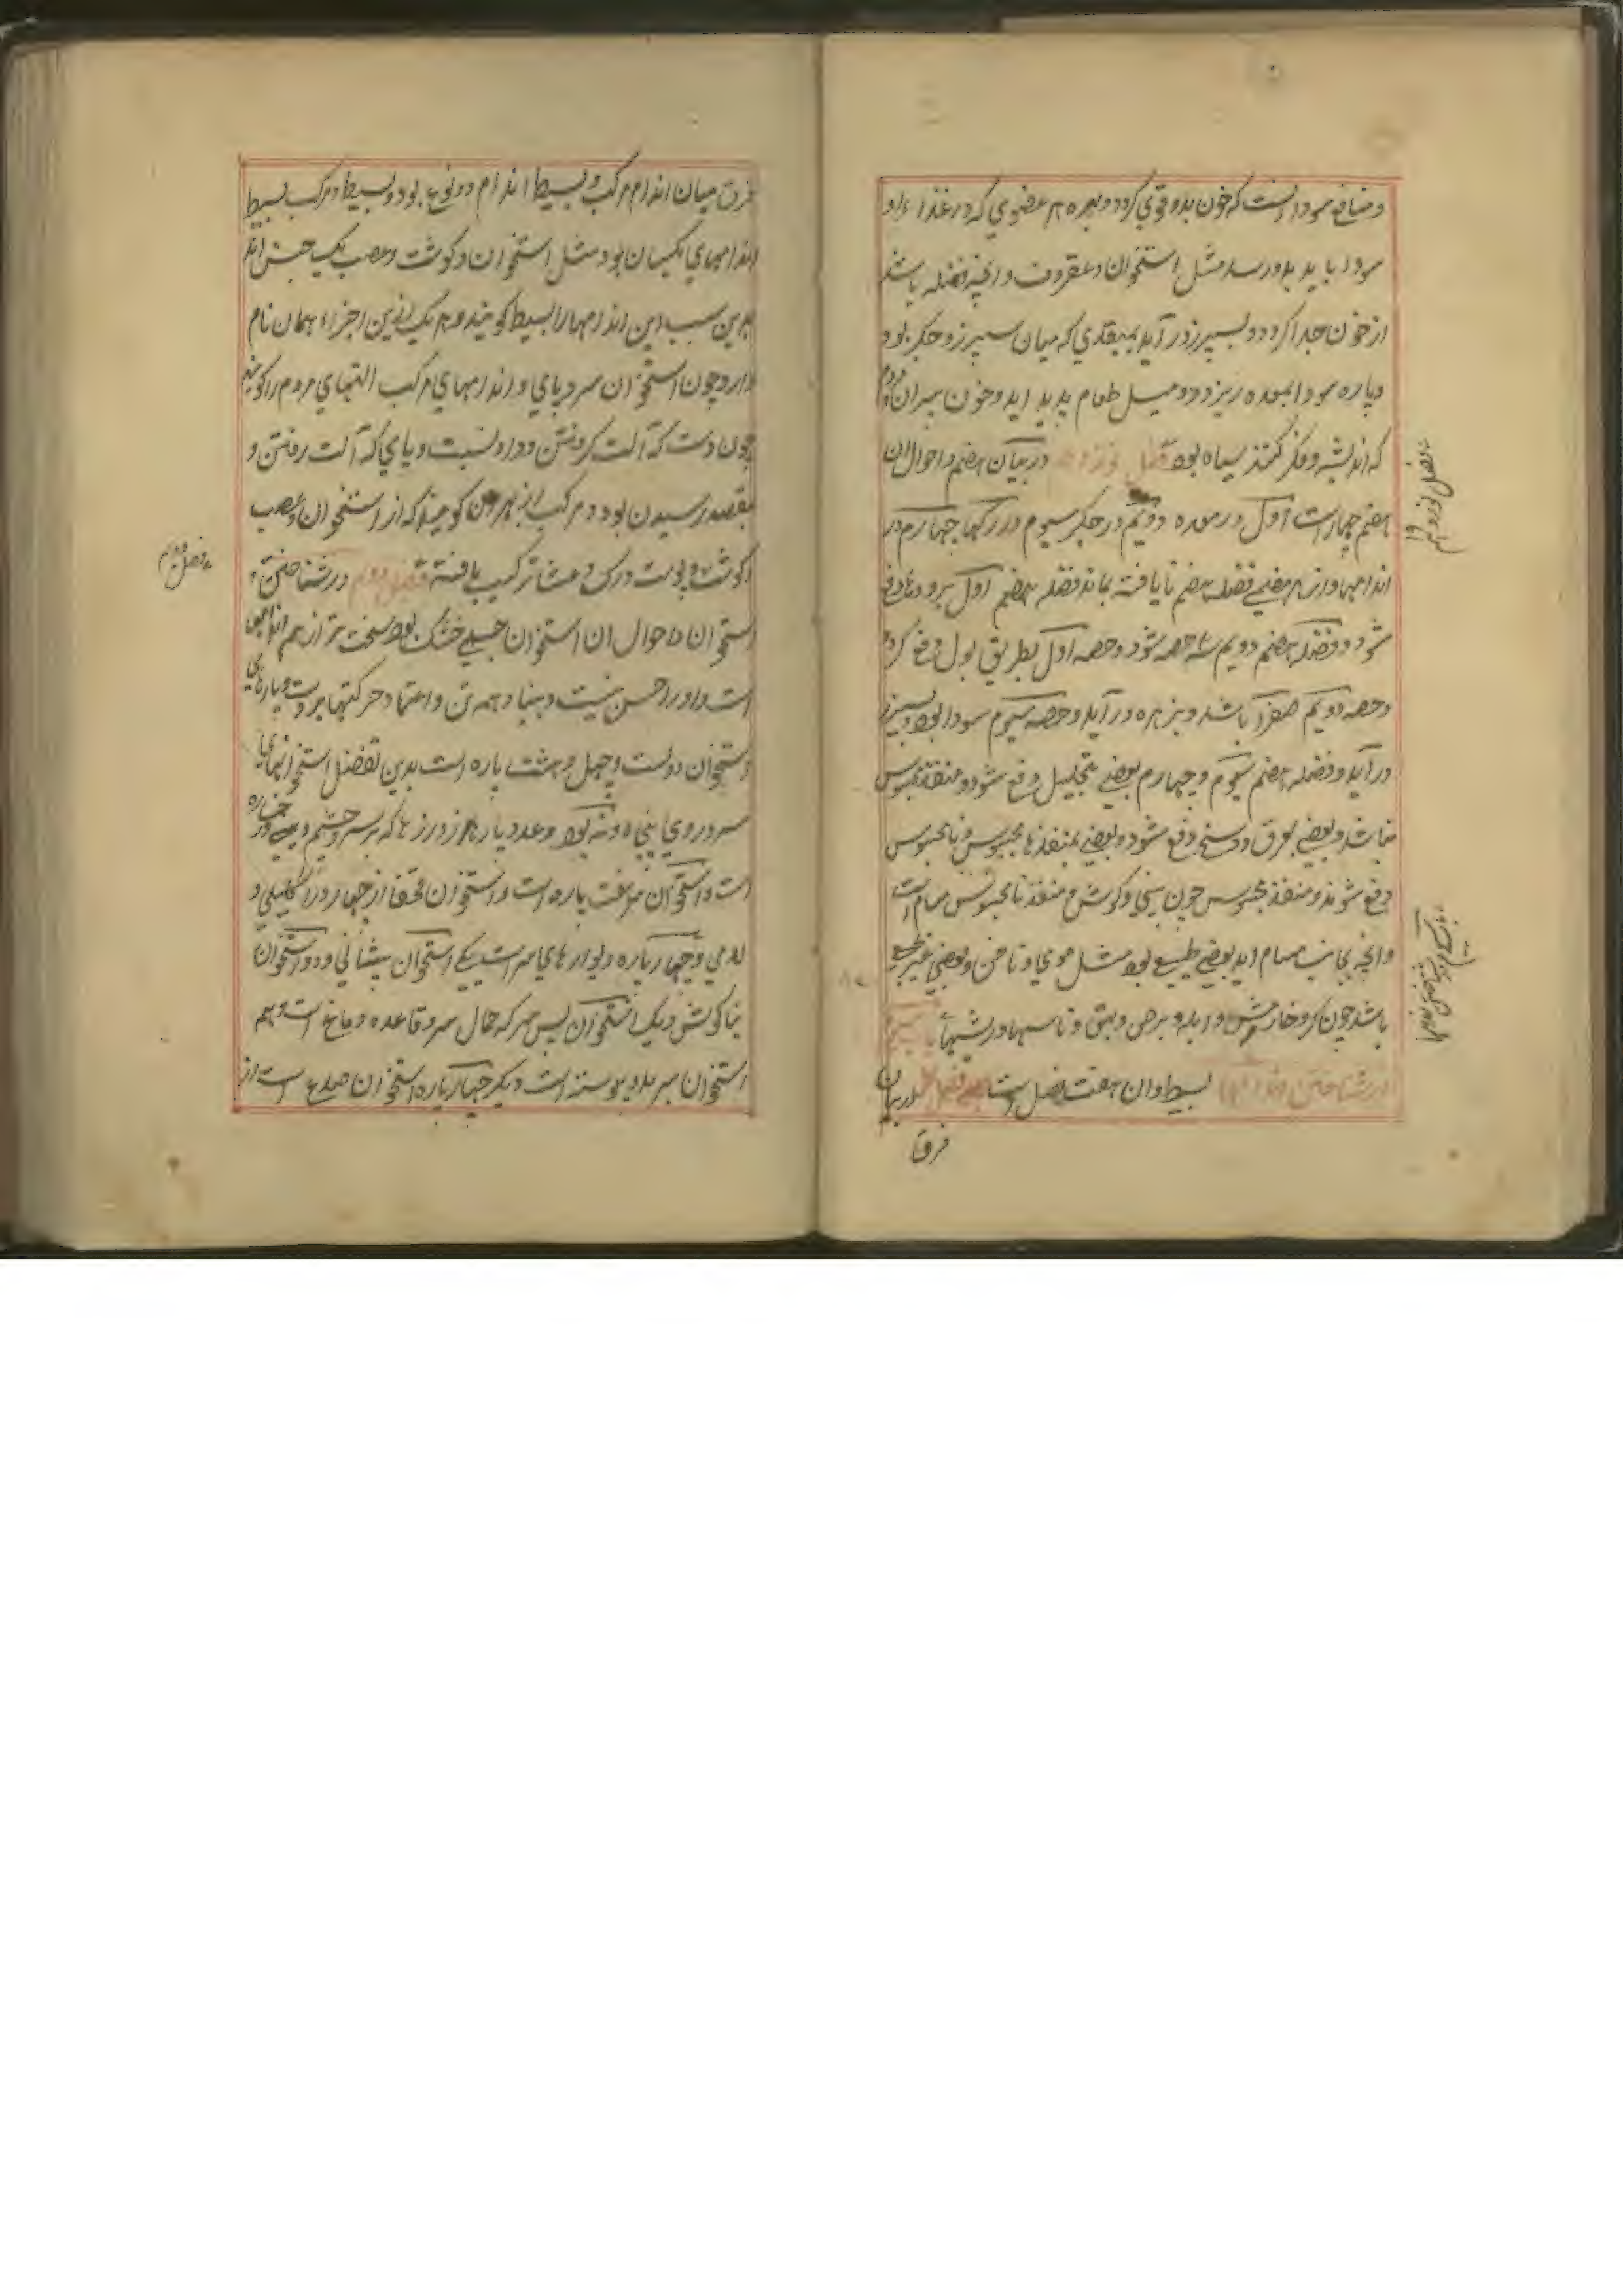 و منافع سودا انست که خون بدو قوي کردد و بهره هر عضوي که در غذاء او
سودا بايد بدو رسد مثل استخوان و غضروف و انچه فضله باشد
از خون جدا کردد و بسپرز در آيد بمنفذي که ميان سپرز و جکر بود
و پاره سودا بمعده ريزد و ميل طعام پديد ايد و خون سپران مردم
که انديشه و فکر کنند سياه بود فصل نوزدهم در بيان هضم و احوال ان
هضم چهارست اول در معده دويم در جکر سيوم در رکها چهارم در
اندامها و از هر هضمي فضله هضم نايافته بماند فضله هضم اول برودها دفع
شود و فضله هضم دويم سه حصه شود و حصه اول بطريق بول دفع کردد
و حصه دويم صفرا باشد و بزهره در آيد و حصه سيوم سودا بود و بسپرز
در آيد و فضله هضم سيوم و چهارم بعضي بتحليل دفع شود و منفذ محبوس
نباشد و بعضي بعرق و وسخ دفع شود و بعضي بمنفذها محبوس و نامحبوس
دفع شوند و منفذ محبوس چون بيني و کوش و منفذ نامحبوس مسام است
و انچه بجانب مسام ايد بعضي طبيعي بود مثل موي و ناخن و بعضي غير طبيعي
باشد چون کر و خارش و ابله و برص و بهق و تاسها و ريشها
در شناختن اندامها بسيط و ان هفت فصل است فصل اول در بيان
فرق
فرق ميان اندام مرکب و بسيط اندام دو نوع بود بسيط و مرکب بسيط
اندامهاي يکسان بود مثل استخوان و کوشت و عصب يک جنس اند
بدين سبب اين اندامها را بسيط کويند و هر يک ازين اجزاء همان نام
دارد چون استخوان سر و پاي و اندامهاي مرکب التهاي مردم را کويند
چون دست که آلت کرفتن و داد و ستد است و پاي که آلت رفتن و
بمقصد رسيدن بود و مرکب از بهر ان کويند که از استخوان و عصب
و کوشت و پوست و رک و غشا ترکيب يافته فصل دوم در شناختن
استخوان و احوال ان استخوان جسمي خشک بود سخت تر از همه اندامها
است و او را حس نيست و بنياد همه تن و اعتماد حرکتها بروست و پارهاي
استخوان دوست و چهل و هشت پاره است بدين تفصيل استخوانهاي
سر و روي پنجاه و نه بود و عدد پارها از درزها که بر سر و چشم و بيني و رخساره
است و استخوان سر هفت پاره است و استخوان قحف از چهار درز اکليلي و
لامي و چهار پاره ديوارهاي سر است يکي استخوان پيشاني و دو استخوان
بناکوش و يک استخوان پس سر که حمال سر و قاعده دماغ است و همه
استخوان سر بدو پيوسته است و ديکر چهار پاره استخوان صدغ است از
فصل دوم